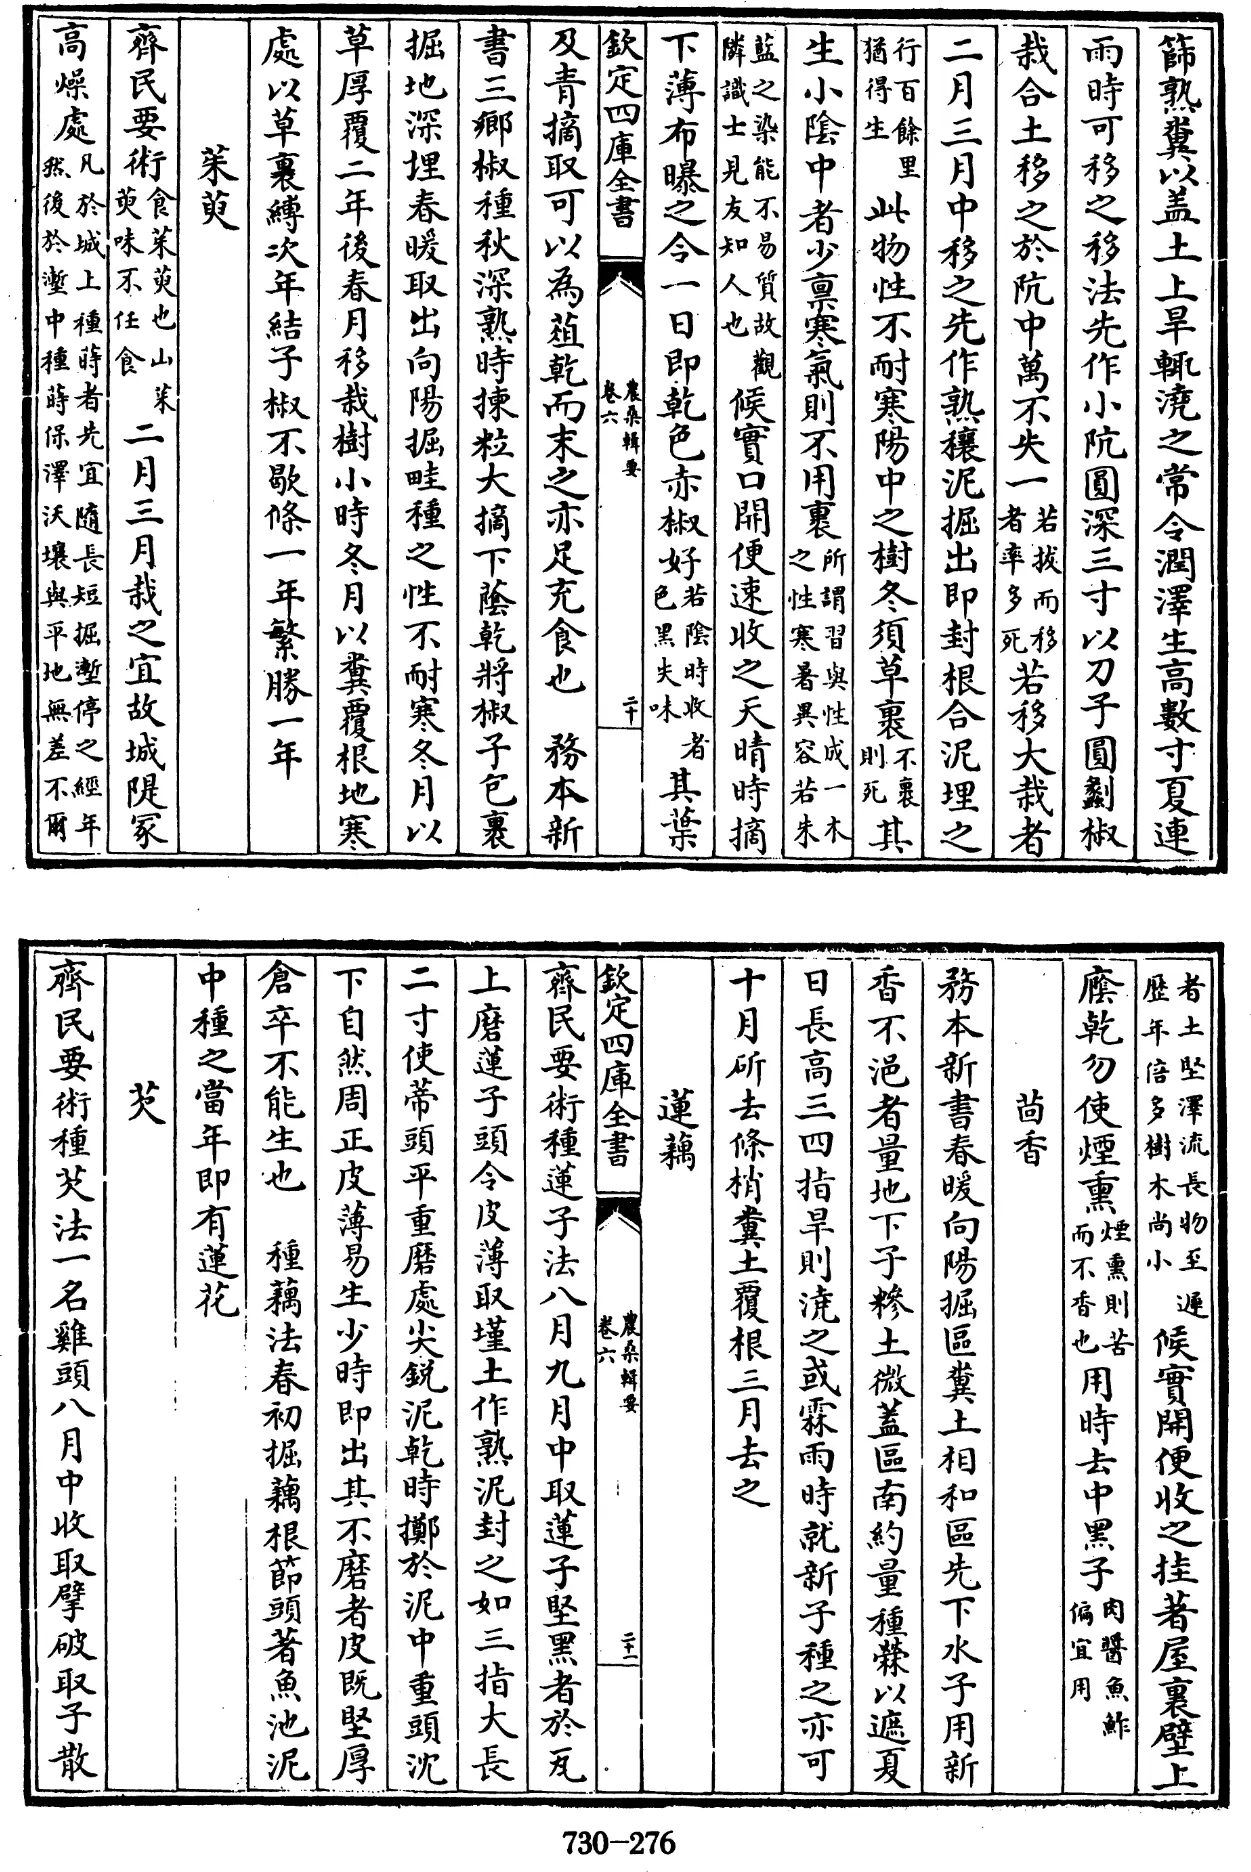 篩熟糞以盖土上旱輒澆之常令潤澤生高數寸夏連
雨時可移之移法先作小阬圓深三寸以刀子圓劙椒
栽合土移之於阬中萬不失一若拔而移者率多死若移大栽者
二月三月中移之先作熟穰泥掘出即封根合泥埋之
行百餘里猶得生此物性不耐寒陽中之樹冬須草裹不裹則死其
生小陰中者少禀寒氣則不用裹所謂習與性成一木之性寒暑異容若朱
藍之染能不易質故觀隣識士見友知人也候實口開便速收之天晴時摘
下薄布曝之令一日即乾色赤椒好若陰時收者色黒失味其葉
欽定四庫全書 農桑輯要卷六 二十
及青摘取可以為菹乾而末之亦足充食也 務本新
書三鄉椒種秋深熟時揀粒大摘下蔭乾將椒子包裹
掘地深埋春暖取出向陽掘畦種之性不耐寒冬月以
草厚覆二年後春月移栽樹小時冬月以糞覆根地寒
處以草裹縛次年結子椒不歇條一年繁勝一年
茱萸
齊民要術食茱萸也山茱萸味不任食二月三月栽之宜故城隄冢
高燥處凡於城上種蒔者先宜隨長短掘壍停之經年然後於壍中種蒔保澤沃壤與平地無差不爾
者土堅澤流長物至遲歴年倍多樹木尚小候實開便收之挂著屋裏壁上
廕乾勿使煙熏煙熏則苦而不香也用時去中黒子肉醬魚鮓偏宜用
茴香
務本新書春暖向陽掘區糞土相和區先下水子用新
香不浥者量地下子糝土微蓋區南約量種檾以遮夏
日長高三四指旱則澆之或霖雨時就新子種之亦可
十月斫去條梢糞土覆根三月去之
蓮藕
欽定四庫全書 農桑輯要卷六 二十一
齊民要術種蓮子法八月九月中取蓮子堅黒者於瓦
上磨蓮子頭令皮薄取墐土作熟泥封之如三指大長
二寸使蒂頭平重磨處尖鋭泥乾時擲於泥中重頭沈
下自然周正皮薄易生少時即出其不磨者皮既堅厚
倉卒不能生也 種藕法春初掘藕根節頭著魚池泥
中種之當年即有蓮花
芡
齊民要術種芡法一名雞頭八月中收取擘破取子散
730-276